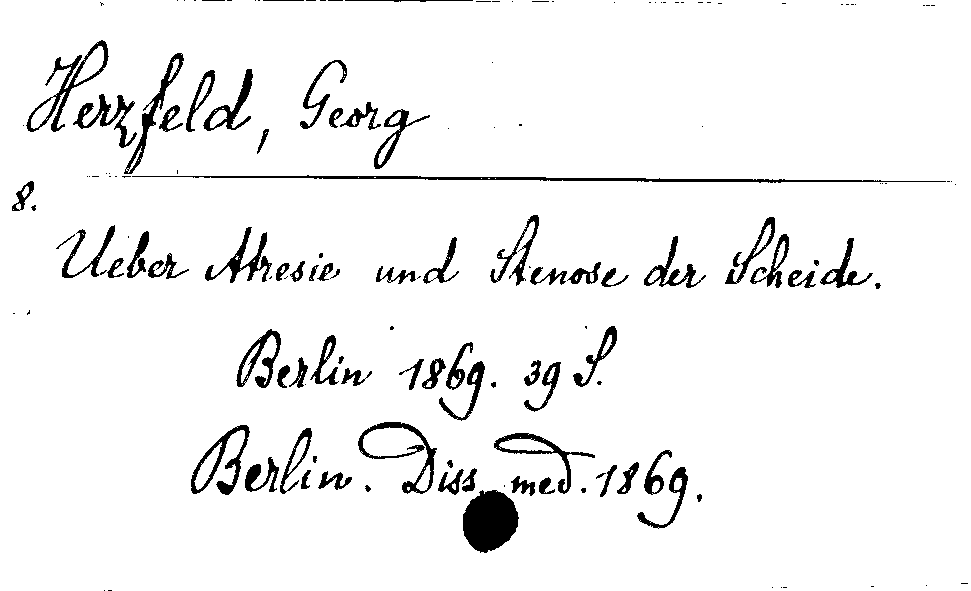 Herzfeld, Georg
8.
Ueber Atresie und Stenose der Scheide.
Berlin 1869. 39 S.
Berlin. Diss. med. 1869.